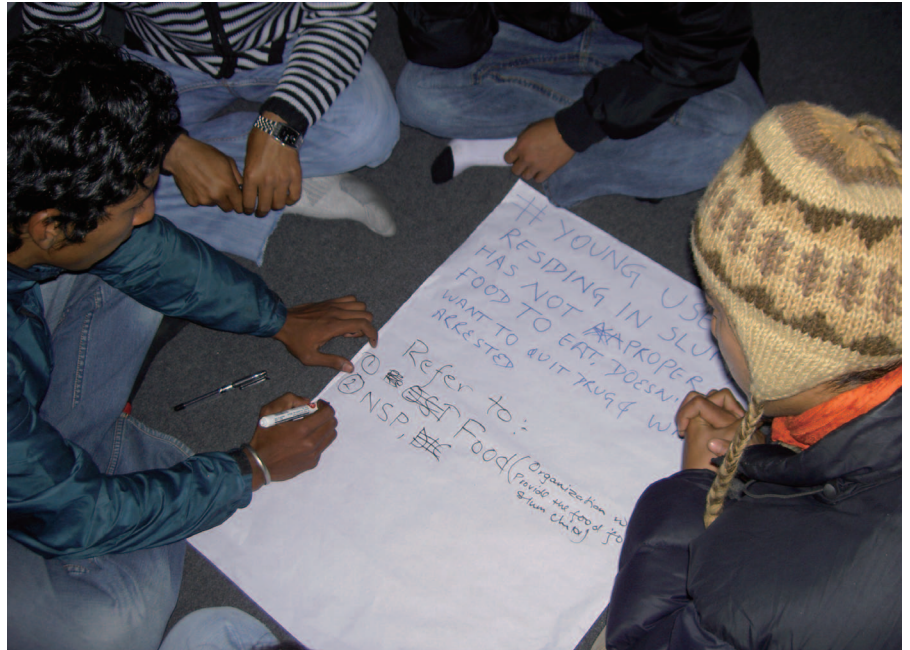 # YOUNG
RESIDING IN
HAS NOT APROPER
FOOD TO EAT. DOESN'
WANT TO QUIT DRUG &
ARRESTED
Refer to:
① Food (Organization
Provide the food
slum
② NSP,